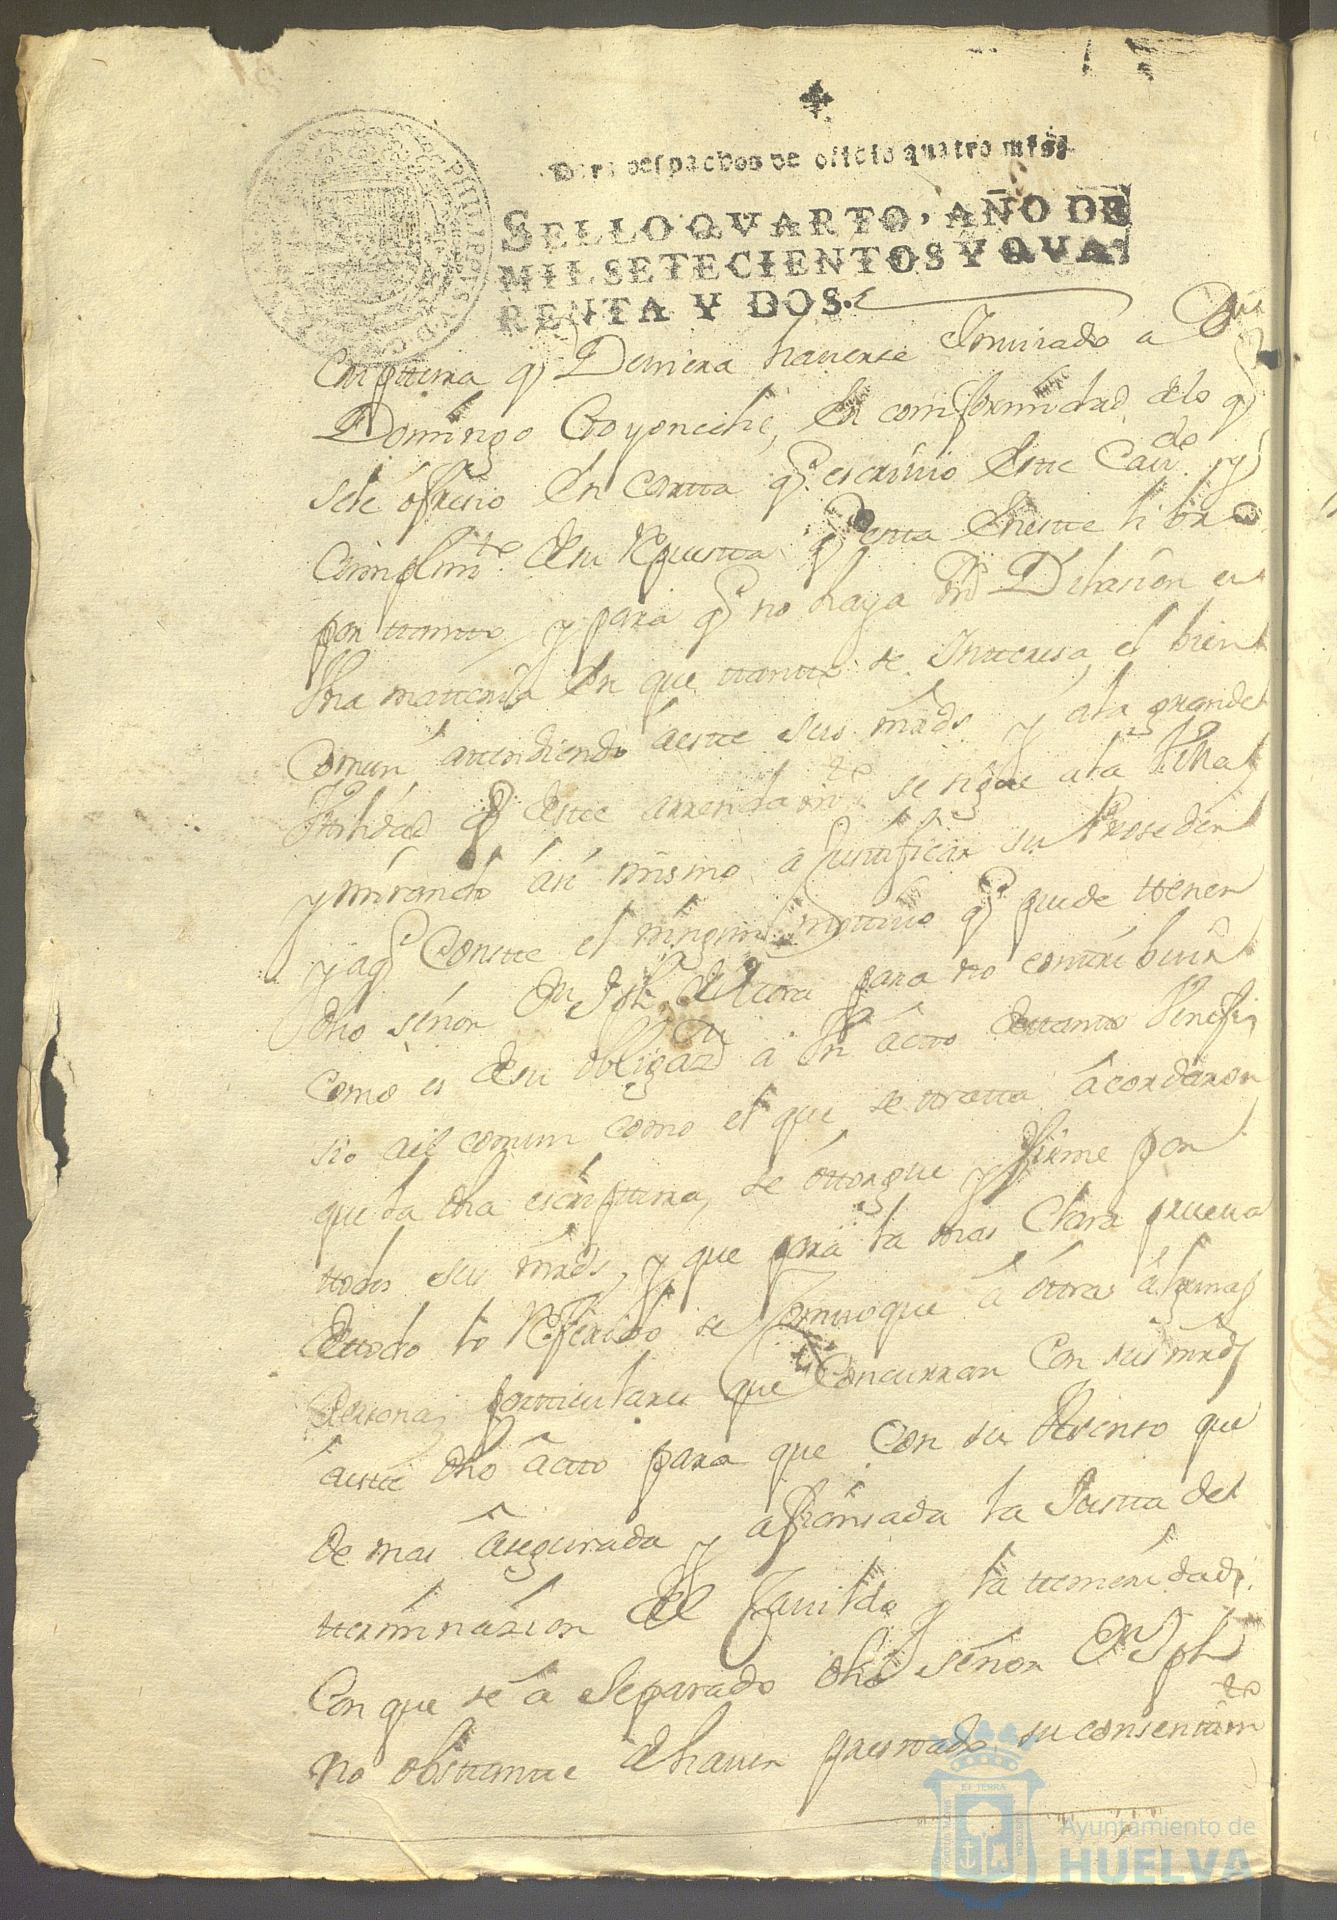 Para despachos de oficio quatro mrs.
SELLO QVARTO, AÑO DE
MIL SETECIENTOS Y QVA
RENTA Y DOS.
PHILIPPUS V D G
Criptura q Deviera haverse Imviado a Dn
Domingo Goyoneche, En comformidad delo q
sele ofresio En cartta q. escrivio Estte Cavdo. y
Cumplimto. desu Rpuestta q estta Enestte libro
por ttantto, y para q no haya Dilasion en
Vna matteria En que ttantto se Intteresa el bien
Comun attendiendo aestte sus mrds y ala grande
Vttilidad q Estte arrendamto. se sigue ala Villa
y mirando asi mismo a Justtificar su Proseder
y aq Constte el ningun mottivo q puede ttener
dho señor Dn Jph de para no conttribuir
como es desu obligazn a Vn actto dettantto Venefi
sio aél comun como el que se ttratta acordaron
que la dha escripttura, se ottorgue y firme por
ttodos sus mrds, y que para la mas Clara prueva
dettodo lo Referido se Comvoque a ottras algunas
Personas partticulares que Concurran Con sus mrds
aestte dho actto para que Con su Asenso que
de mas asegurada y afiansada la Justta de
tterminasion del Cavildo y la ttemeridad
Con que se a Separado dho señor Dn Jph
no obsttantte de haver presttado su consenttimto
ET TERRÆ
Ayuntamiento de
HUELVA